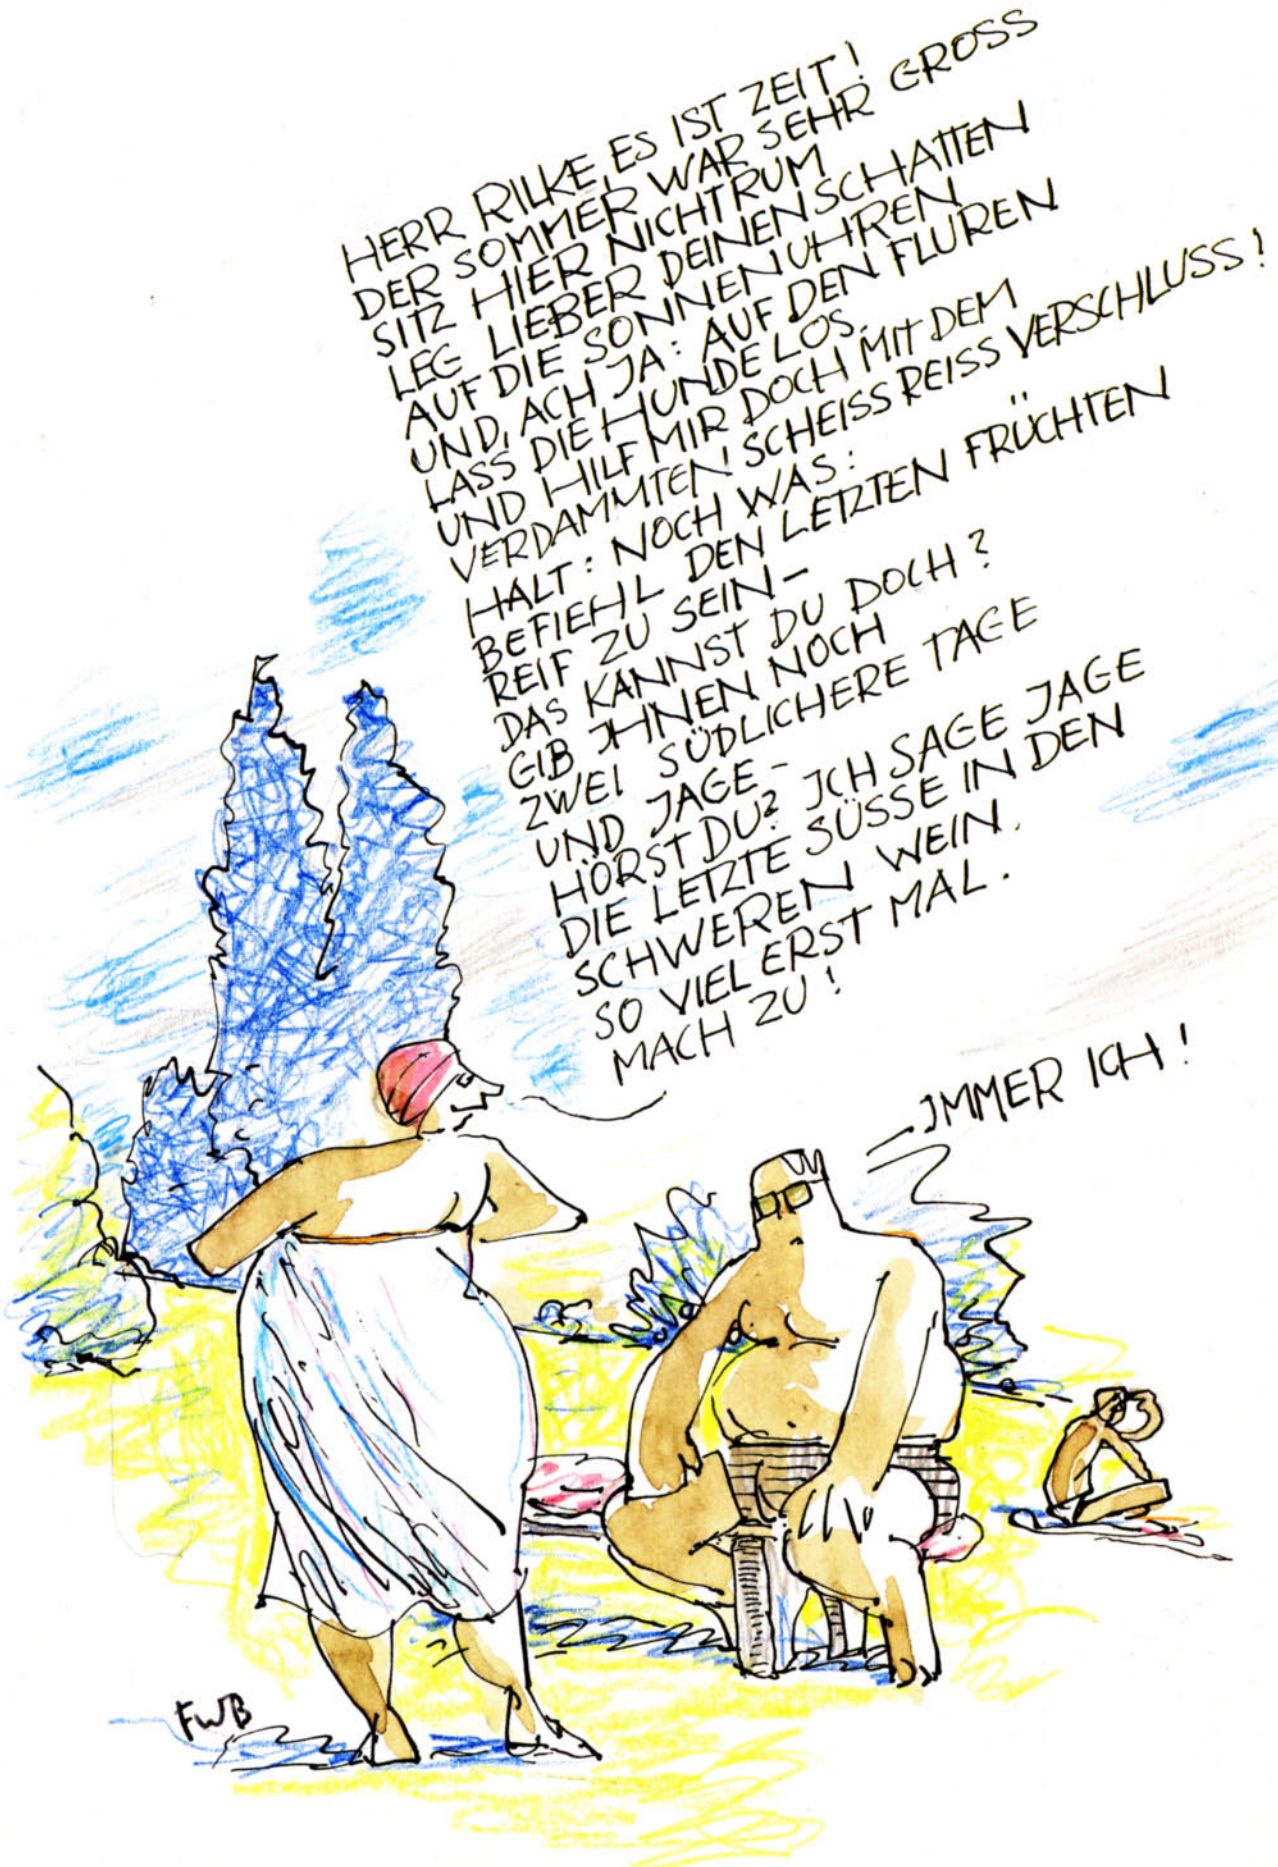 HERR RILKE, ES IST ZEIT!
DER SOMMER WAR SEHR GROSS
SITZ HIER NICHT RUM
LEG LIEBER DEINEN SCHATTEN
AUF DIE SONNENUHREN
UND, ACH JA: AUF DEN FLUREN
LASS DIE HUNDE LOS.
UND HILF MIR DOCH MIT DEM
VERDAMMTEN SCHEISS REISSVERSCHLUSS!
HALT: NOCH WAS:
BEFIEHL DEN LETZTEN FRÜCHTEN
REIF ZU SEIN –
DAS KANNST DU DOCH?
GIB JHNEN NOCH
ZWEI SÜDLICHERE TAGE
UND JAGE –
HÖRST DU? JCH SAGE JAGE
DIE LETZTE SÜSSE IN DEN
SCHWEREN WEIN.
SO VIEL ERST MAL.
MACH ZU!
JMMER ICH!
FWB